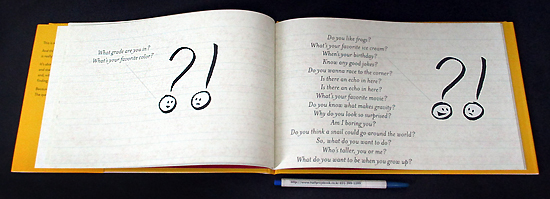 What grade are you in?
What's your favorite color?
Do you like frogs?
What's your favorite ice cream?
When's your birthday?
Know any good jokes?
Do you wanna race to the corner?
Is there an echo in here?
Is there an echo in here?
What's your favorite movie?
Do you know what makes gravity?
Why do you look so surprised?
Am I boring you?
Do you think a snail could go around the world?
So, what do you want to do?
Who's taller, you or me?
What do you want to be when you grow up?
?!
?!